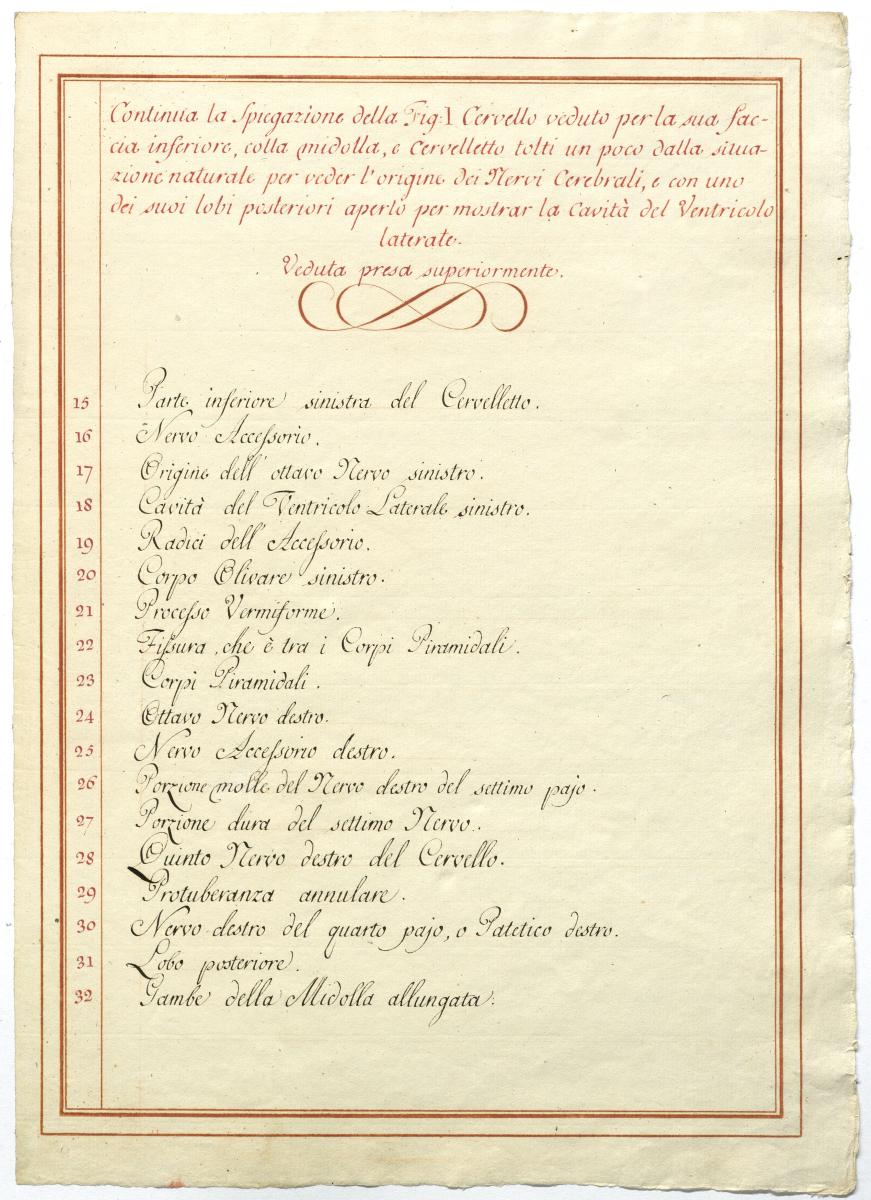 Continua la Spiegazione della Fig: I Cervello veduto per la sua fac-
cia inferiore, colla midolla, e Cervelletto tolti un poco dalla situa-
zione naturale per veder l'origine dei Nervi Cerebrali, e con uno
dei suoi lobi posteriori aperto per mostrar la Cavità del Ventricolo
laterale.
Veduta presa superiormente.
15 Parte inferiore sinistra del Cervelletto.
16 Nervo Accessorio.
17 Origine dell'ottavo Nervo sinistro.
18 Cavità del Ventricolo Laterale sinistro.
19 Radici dell'Accessorio.
20 Corpo Olivare sinistro.
21 Processo Vermiforme.
22 Fissura, che è tra i Corpi Piramidali.
23 Corpi Piramidali.
24 Ottavo Nervo destro.
25 Nervo Accessorio destro.
26 Porzione molle del Nervo destro del settimo pajo.
27 Porzione dura del settimo Nervo.
28 Quinto Nervo destro del Cervello.
29 Protuberanza annulare.
30 Nervo destro del quarto pajo, o Patetico destro.
31 Lobo posteriore.
32 Gambe della Midolla allungata.